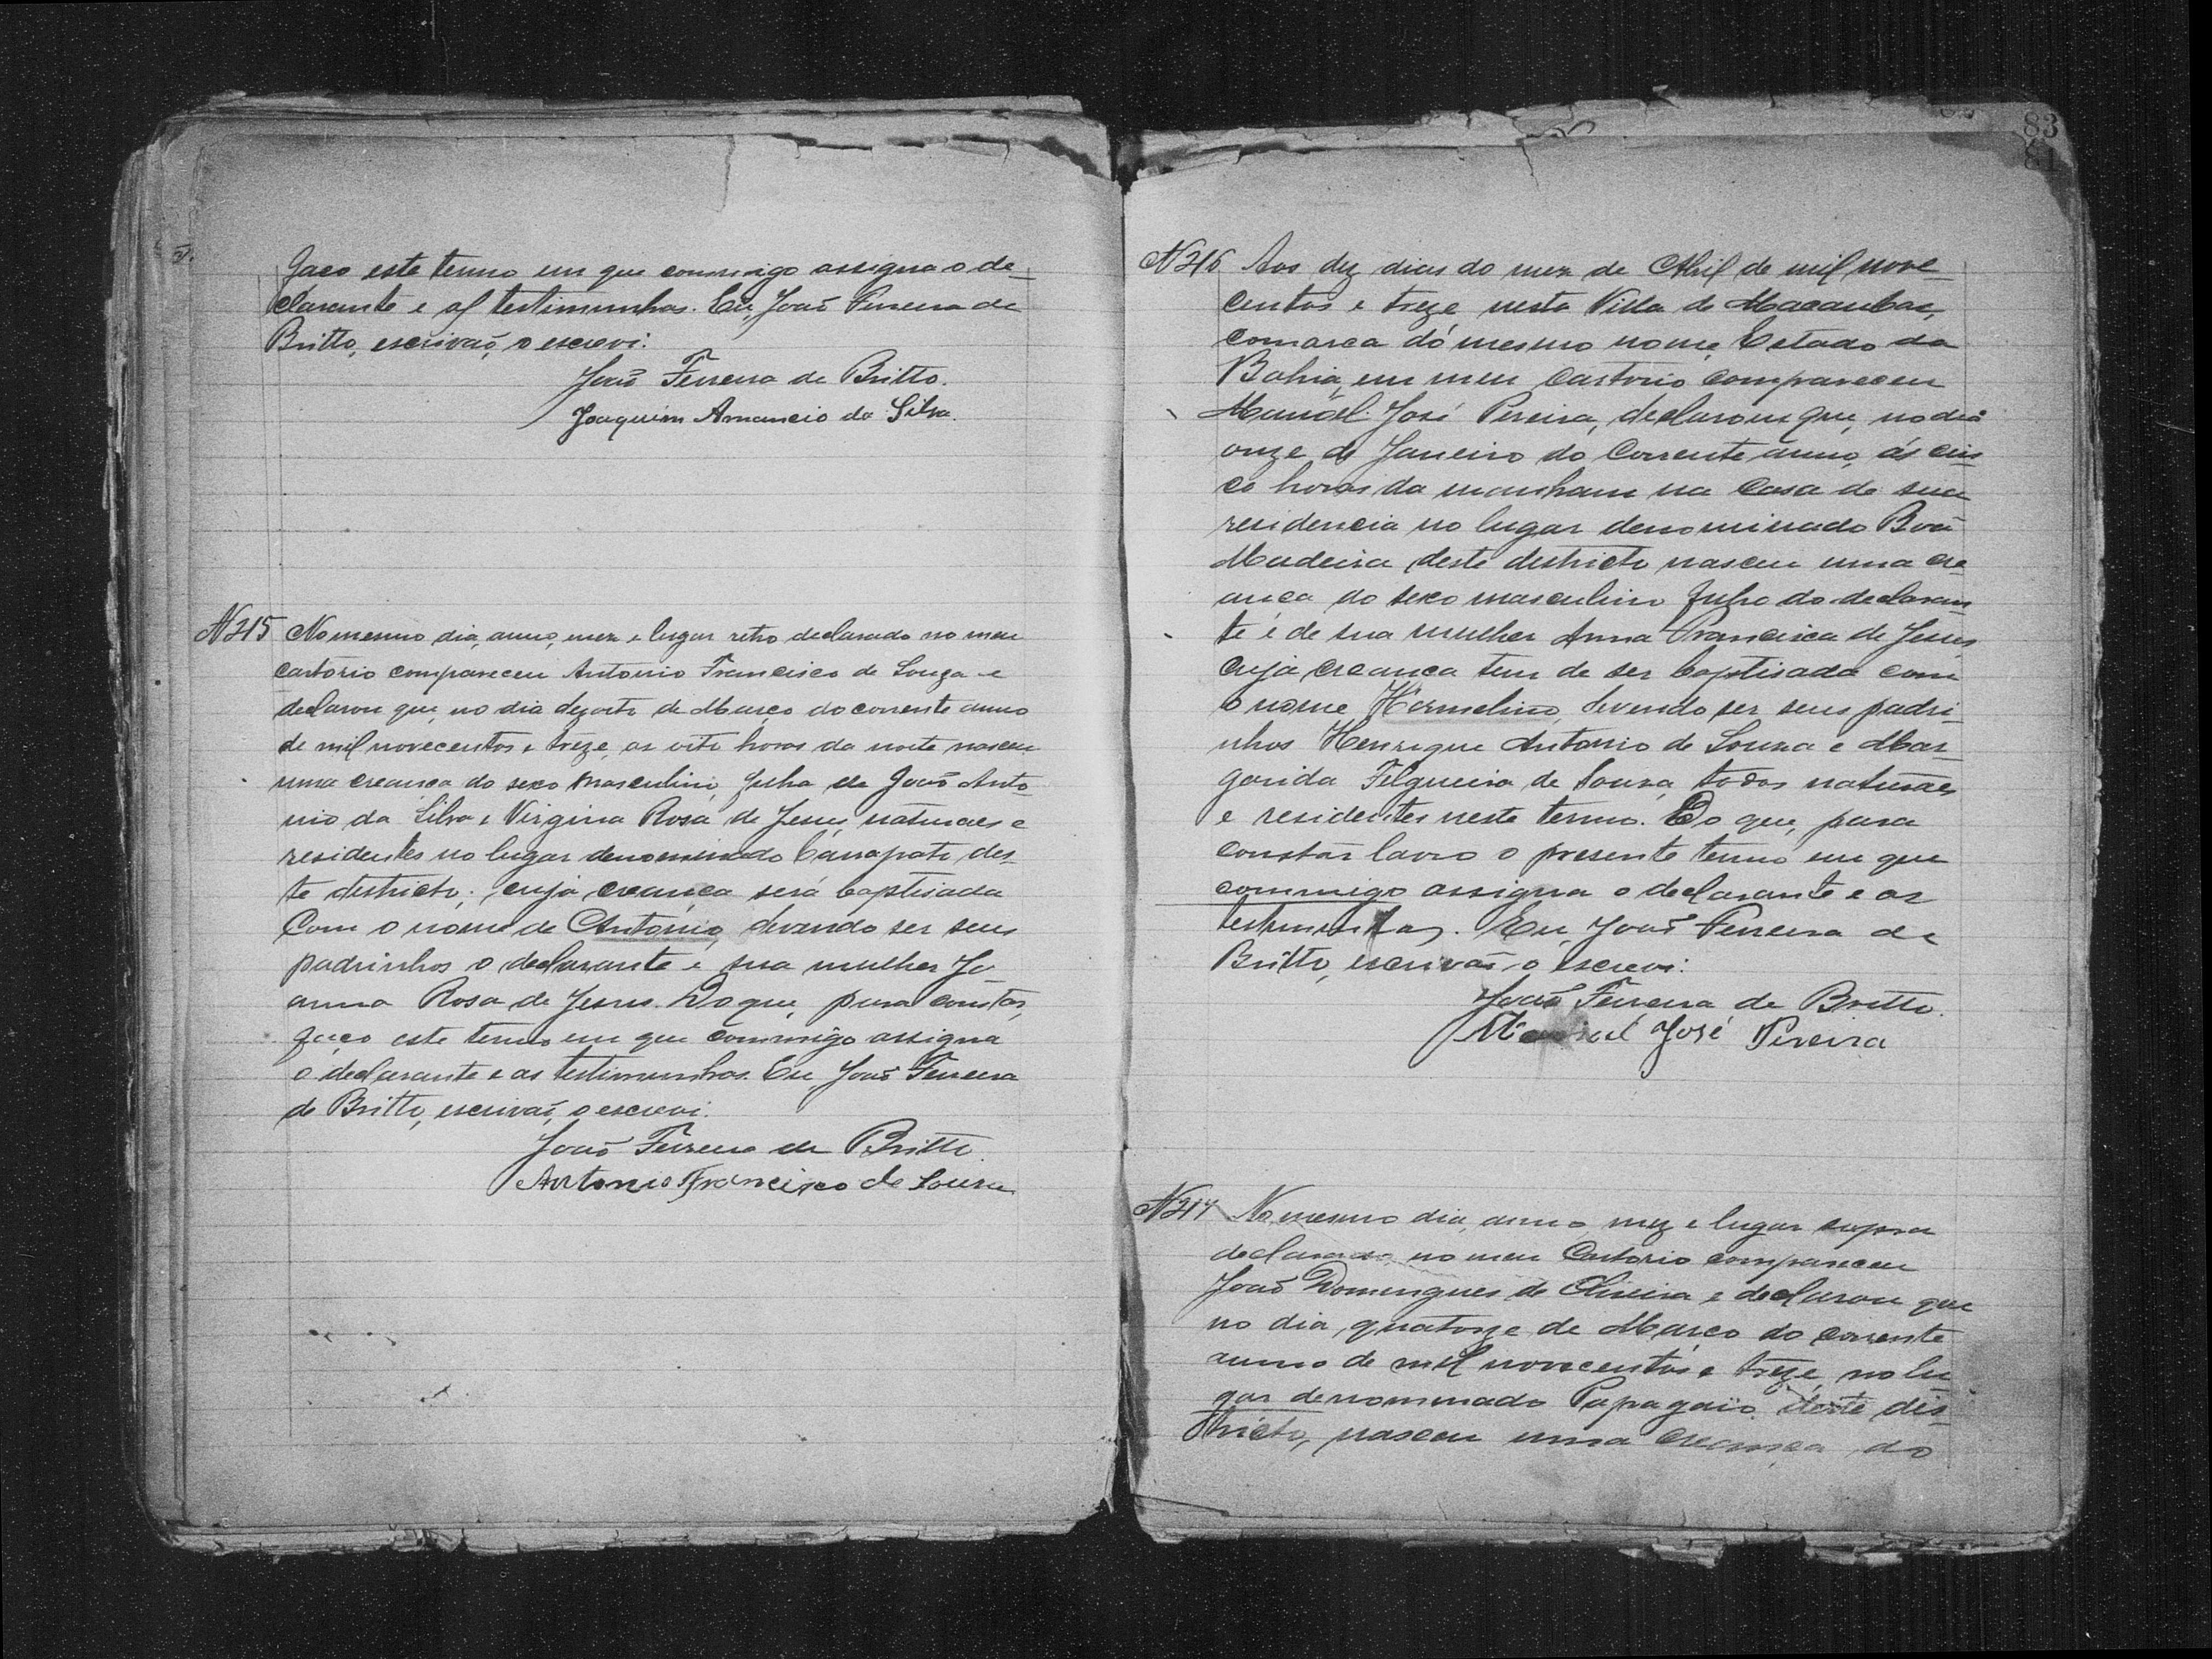 faço este termo em que commigo assigna o de-
clarante e as testimunhas. Eu, João Ferreira de
Britto, escrivão, o escrevi.
João Ferreira de Britto.
Joaquim Amancio da Silva.
N 215 No mesmo dia, anno, mez e lugar retro declarado no meu
cartorio compareceu Antonio Francisco de Souza e
declarou que, no dia dezoito de Março do corrente anno
de mil novecentos e treze, as oito horas da noite nasceu
uma creança do sexo masculino, filha de João Anto-
nio da Silva e Virginia Rosa de Jesus, naturaes e
residentes no lugar denominado Canapato, des-
te districto; cuja creança será baptisada
Com o nome de Antonio, devendo ser seus
padrinhos o declarante e sua mulher Jo-
anna Rosa de Jesus. Do que, para constar,
faço este termo em que commigo assigna
o declarante e as testimunhas. Eu, João Ferreira
de Britto, escrivão, o escrevi.
João Ferreira de Britto.
Antonio Francisco de Souza
83
81
N 216 Aos dez dias do mez de Abril de mil nove-
centos e treze nesta Villa de Macaubas,
comarca do mesmo nome, Estado da
Bahia, em meu Cartorio compareceu
Manoel José Pereira, declarou que, no dia
onze de Janeiro do Corrente anno, ás cin-
co horas da manham na Casa de sua
residencia no lugar denominado Boa
Madeira deste districto nasceu uma cre-
ança do sexo masculino filho do declaran-
te e de sua mulher Anna Francisca de Jesus
cuja creança tem de ser baptisada com
o nome Hermelino, devendo ser seus padri-
nhos Henrique Antonio de Souza e Mar-
garida Felgueira de Souza, todos naturaes
e residentes neste termo. Do que, para
constar lavro o presente termo em que
commigo assigna o declarante e as
testimunhas. Eu, João Ferreira de
Britto, escrivão, o escrevi.
João Ferreira de Britto.
Manoel José Pereira
N 217 No mesmo dia, anno mez e lugar supra
declarado, no meu Cartorio compareceu
João Domingues de Oliveira e declarou que
no dia quatorze de Março do corrente
anno de mil novecentos e treze, no lu-
gar denominado Papagaio deste dis-
tricto, nasceu uma creança do